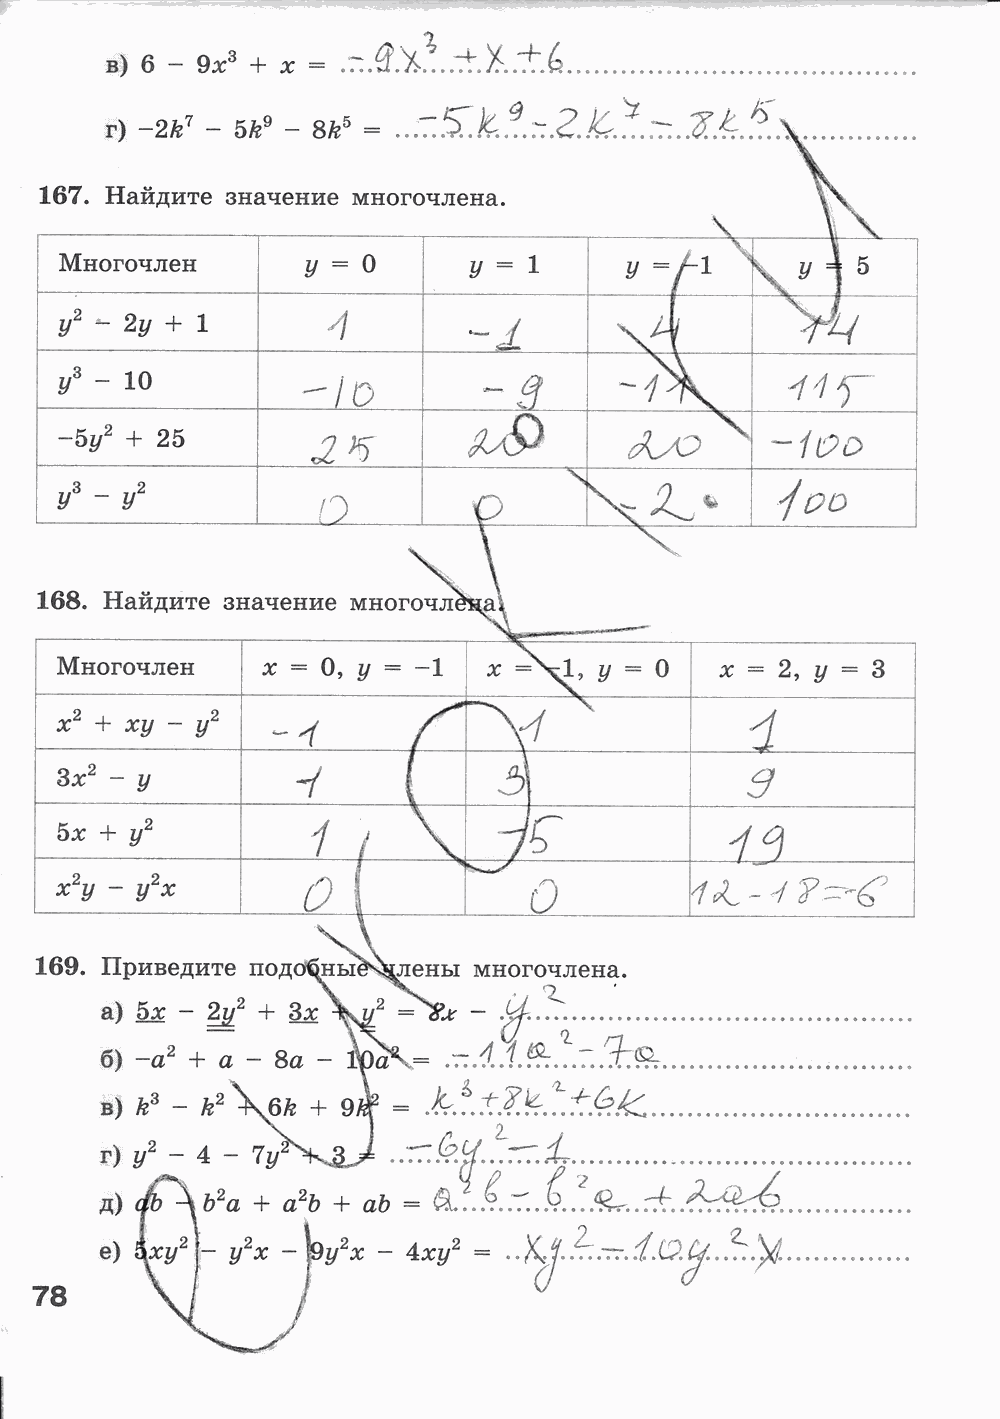 в) 6 − 9x³ + x = −9x³ + x + 6
г) −2k⁷ − 5k⁹ − 8k⁵ = −5k⁹ − 2k⁷ − 8k⁵
167. Найдите значение многочлена.
Многочлен y = 0 y = 1 y = −1 y = 5
y² − 2y + 1 1 −1 4 14
y³ − 10 −10 −9 −11 115
−5y² + 25 25 20 20 −100
y³ − y² 0 0 −2 100
168. Найдите значение многочлена.
Многочлен x = 0, y = −1 x = −1, y = 0 x = 2, y = 3
x² + xy − y² −1 1 1
3x² − y 1 3 9
5x + y² 1 −5 19
x²y − y²x 0 0 12−18=−6
169. Приведите подобные члены многочлена.
а) 5x − 2y² + 3x + y² = 8x − y²
б) −a² + a − 8a − 10a² = −11a² − 7a
в) k³ − k² + 6k + 9k² = k³ + 8k² + 6k
г) y² − 4 − 7y² + 3 = −6y² − 1
д) ab − b²a + a²b + ab = a²b − b²a + 2ab
е) 5xy² − y²x − 9y²x − 4xy² = xy² − 10y²x
78